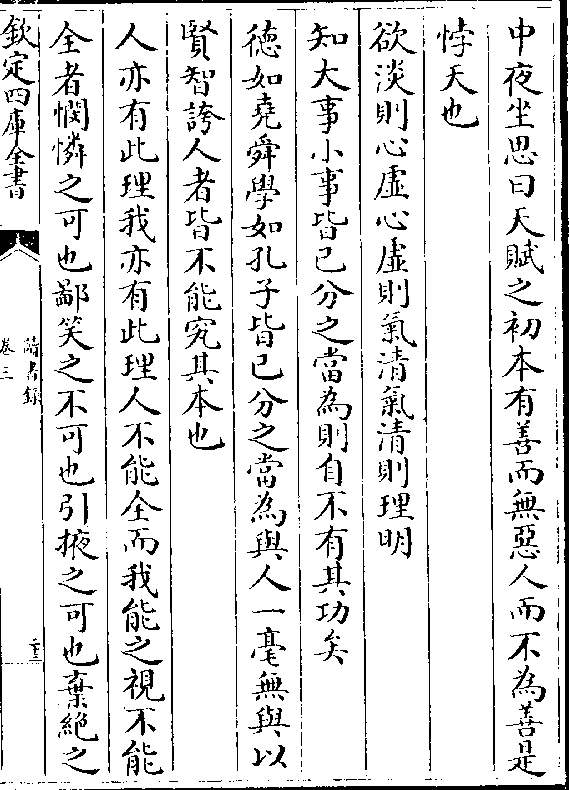 中夜坐思曰天賦之初本有善而無惡人而不為善是
悖天也
欲淡則心虛心虛則氣清氣清則理明
知大事小事皆已分之當為則自不有其功矣
德如堯舜學如孔子皆已分之當為與人一毫無與以
賢智誇人者皆不能究其本也
人亦有此理我亦有此理人不能全而我能之視不能
全者憫憐之可也鄙笑之不可也引掖之可也棄絶之
欽定四庫全書
讀書錄
卷三